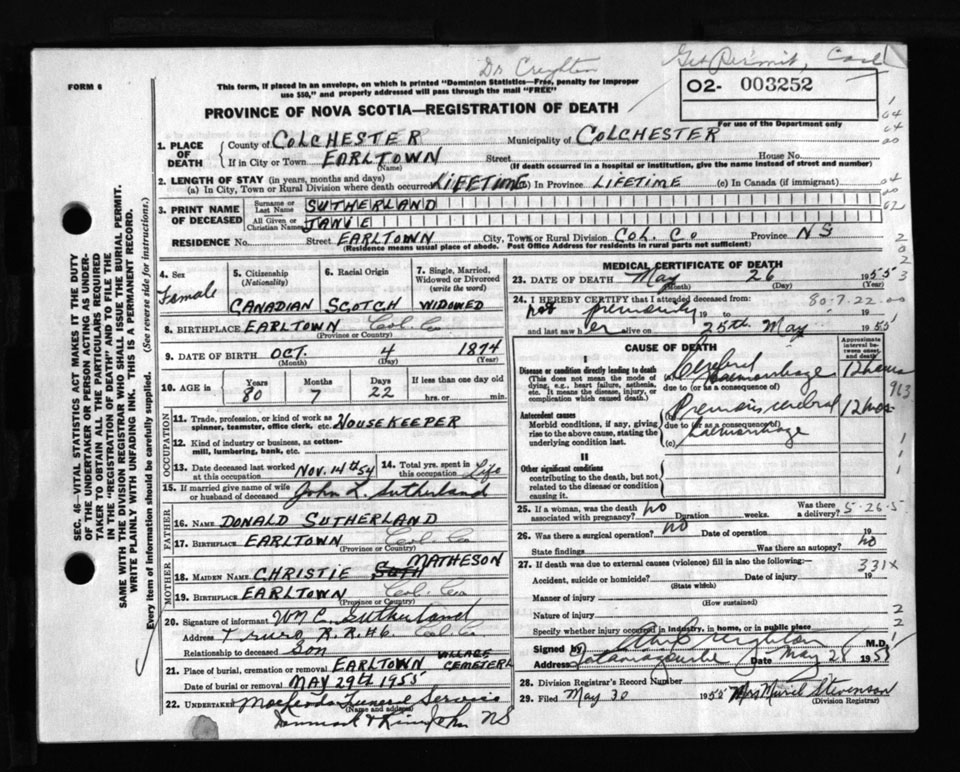 Dr Creighton
Get Permit, Card
FORM 6
This form, if placed in an envelope, on which is printed "Dominion Statistics—Free, penalty for improper
use $50," and properly addressed will pass through the mail "FREE"
O2- 003252
For use of the Department only
PROVINCE OF NOVA SCOTIA—REGISTRATION OF DEATH
SEC. 46—VITAL STATISTICS ACT MAKES IT THE DUTY
OF THE UNDERTAKER OR PERSON ACTING AS UNDER-
TAKER TO OBTAIN ALL THE PARTICULARS REQUIRED
IN THE "REGISTRATION OF DEATH" AND TO FILE THE
SAME WITH THE DIVISION REGISTRAR WHO SHALL ISSUE THE BURIAL PERMIT.
WRITE PLAINLY WITH UNFADING INK. THIS IS A PERMANENT RECORD.
Every item of information should be carefully supplied. (See reverse side for instructions.)
1. PLACE OF DEATH
County of COLCHESTER Municipality of COLCHESTER
If in City or Town EARLTOWN Street House No.
(Name) (If death occurred in a hospital or institution, give the name instead of street and number)
2. LENGTH OF STAY (in years, months and days)
(a) In City, Town or Rural Division where death occurred LIFETIME (b) In Province LIFETIME (c) In Canada (if immigrant)
3. PRINT NAME OF DECEASED
Surname or Last Name SUTHERLAND
All Given or Christian Names JANIE
RESIDENCE No. Street EARLTOWN City, Town or Rural Division COL. CO Province NS
(Residence means usual place of abode. Post Office Address for residents in rural parts not sufficient)
4. Sex Female
5. Citizenship (Nationality) CANADIAN
6. Racial Origin SCOTCH
7. Single, Married, Widowed or Divorced (write the word) WIDOWED
8. BIRTHPLACE EARLTOWN Col. Co
(Province or Country)
9. DATE OF BIRTH OCT. 4 1874
(Month) (Day) (Year)
10. AGE in Years 80 Months 7 Days 22 If less than one day old hrs. or min.
OCCUPATION
11. Trade, profession, or kind of work as spinner, teamster, office clerk, etc. HOUSEKEEPER
12. Kind of industry or business, as cotton-mill, lumbering, bank, etc.
13. Date deceased last worked at this occupation NOV. 14th 54
14. Total yrs. spent in this occupation Life
15. If married give name of wife or husband of deceased John L. Sutherland
FATHER
16. NAME DONALD SUTHERLAND
17. BIRTHPLACE EARLTOWN Col. Co
(Province or Country)
MOTHER
18. MAIDEN NAME CHRISTIE MATHESON
19. BIRTHPLACE EARLTOWN Col. Co
(Province or Country)
20. Signature of informant Wm C. Sutherland
Address Truro R.R. #6 Col. Co
Relationship to deceased Son
21. Place of burial, cremation or removal EARLTOWN VILLAGE CEMETERY
Date of burial or removal MAY 29th 1955
22. UNDERTAKER Funeral Service
(Name and address)
NS
MEDICAL CERTIFICATE OF DEATH
23. DATE OF DEATH May 26 1955
(Month) (Day) (Year)
24. I HEREBY CERTIFY that I attended deceased from: 80-7-22-00
not previously 19 to 19
and last saw her alive on 25th May 1955
CAUSE OF DEATH
Approximate interval between onset and death
I
Disease or condition directly leading to death
(This does not mean the mode of dying, e.g., heart failure, asthenia, etc. It means the disease, injury, or complication which caused death.)
(a) Cerebral haemorrhage 12 hours
due to (or as a consequence of)
963
Antecedent causes
Morbid conditions, if any, giving rise to the above cause, stating the underlying condition last.
(b) Previous cerebral 12 mos
due to (or as a consequence of)
(c) haemorrhage
II
Other significant conditions
contributing to the death, but not related to the disease or condition causing it.
25. If a woman, was the death associated with pregnancy? no Duration weeks. Was there a delivery?
5-26-5
26. Was there a surgical operation? no 19
State findings Was there an autopsy? no
27. If death was due to external causes (violence) fill in also the following:—
331x
Accident, suicide or homicide? Date of injury 19
(State which)
Manner of injury
(How sustained)
Nature of injury
Specify whether injury occurred in industry, in home, or in public place
Signed by Creighton M.D.
Address Tatamagouche Date May 28 1955
28. Division Registrar's Record Number
29. Filed May 30 1955 Mrs Muriel Stevenson
(Division Registrar)